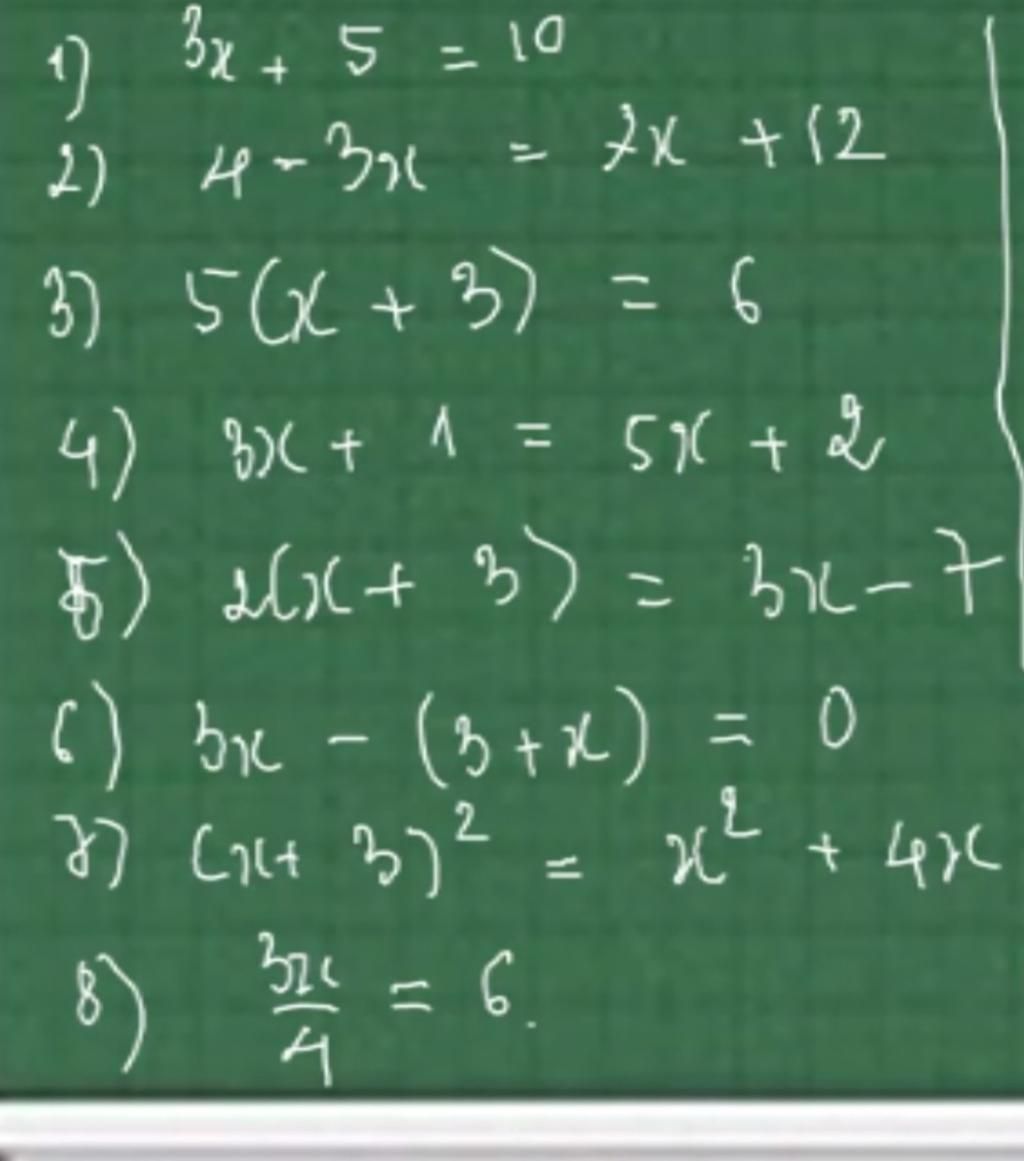 1) 3x + 5 = 10
2) 4 - 3x = 7x + 12
3) 5(x + 3) = 6
4) 3x + 1 = 5x + 2
5) 2(x + 3) = 3x - 7
6) 3x - (3 + x) = 0
7) (x + 3)² = x² + 4x
8) 3x/4 = 6.